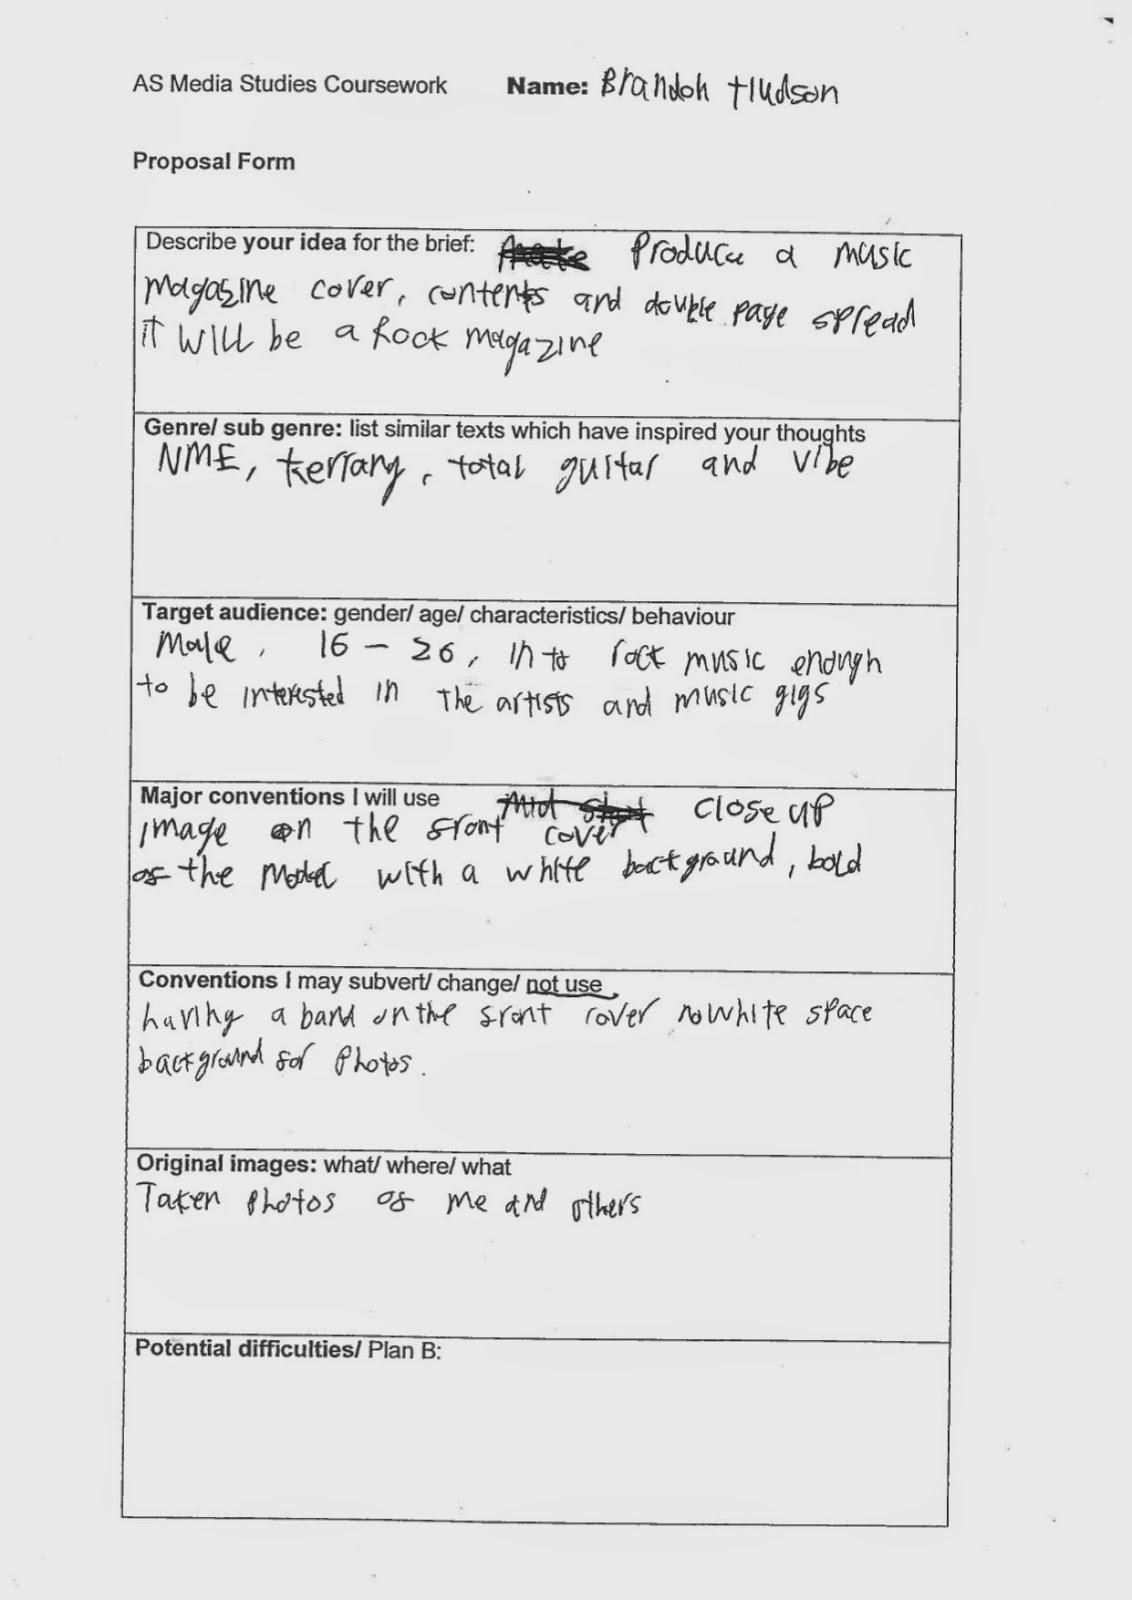 AS Media Studies Coursework Name: Brandon Hudson
Proposal Form
Describe your idea for the brief: Make Produce a music
magazine cover, contents and double page spread
it will be a Rock magazine
Genre/ sub genre: list similar texts which have inspired your thoughts
NME, kerrang, total guitar and vibe
Target audience: gender/ age/ characteristics/ behaviour
Male, 16 - 26, in to rock music enough
to be interested in the artists and music gigs
Major conventions I will use Mid shot close up
image on the front cover
of the model with a white background, bold
Conventions I may subvert/ change/ not use
having a band on the front cover no white space
background for photos.
Original images: what/ where/ what
Taken photos of me and others
Potential difficulties/ Plan B: